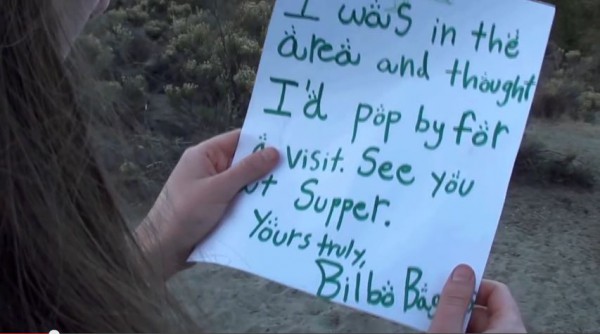 I was in the
area and thought
I'd pop by for
a visit. See you
at Supper.
Yours truly,
Bilbo